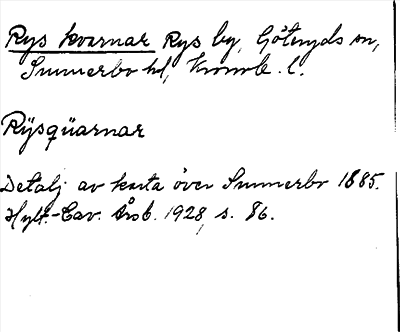 Rys kvarnar Rys by, Göteryds sn,
Sunnerbo hd, Kronob. l.
Rÿsqüarnar
Detalj av karta över Sunnerbo 1685.
Hylt.-Cav. Årsb. 1928, s. 86.